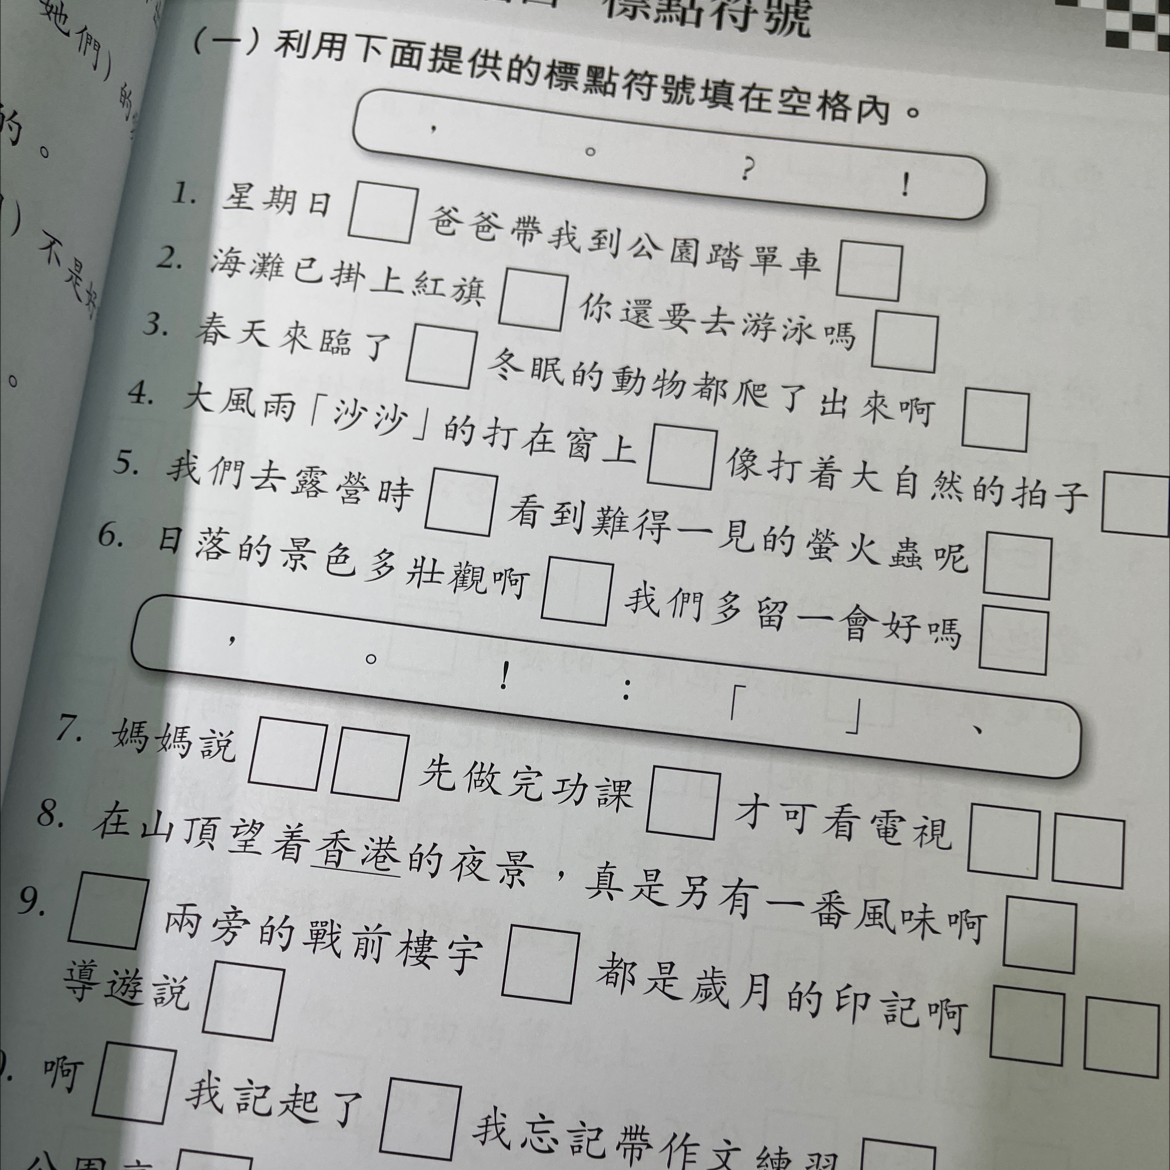 她們）的
的。
不是好
標點符號
（一）利用下面提供的標點符號填在空格內。
， 。 ？ ！
1. 星期日□爸爸帶我到公園踏單車□
2. 海灘已掛上紅旗□你還要去游泳嗎□
3. 春天來臨了□冬眠的動物都爬了出來啊□
4. 大風雨「沙沙」的打在窗上□像打着大自然的拍子□
5. 我們去露營時□看到難得一見的螢火蟲呢□
6. 日落的景色多壯觀啊□我們多留一會好嗎□
， 。 ！ ： 「 」 、
7. 媽媽說□□先做完功課□才可看電視□□
8. 在山頂望着香港的夜景，真是另有一番風味啊□
9. □兩旁的戰前樓宇□都是歲月的印記啊□□
導遊說□
啊□我記起了□我忘記帶作文練習□